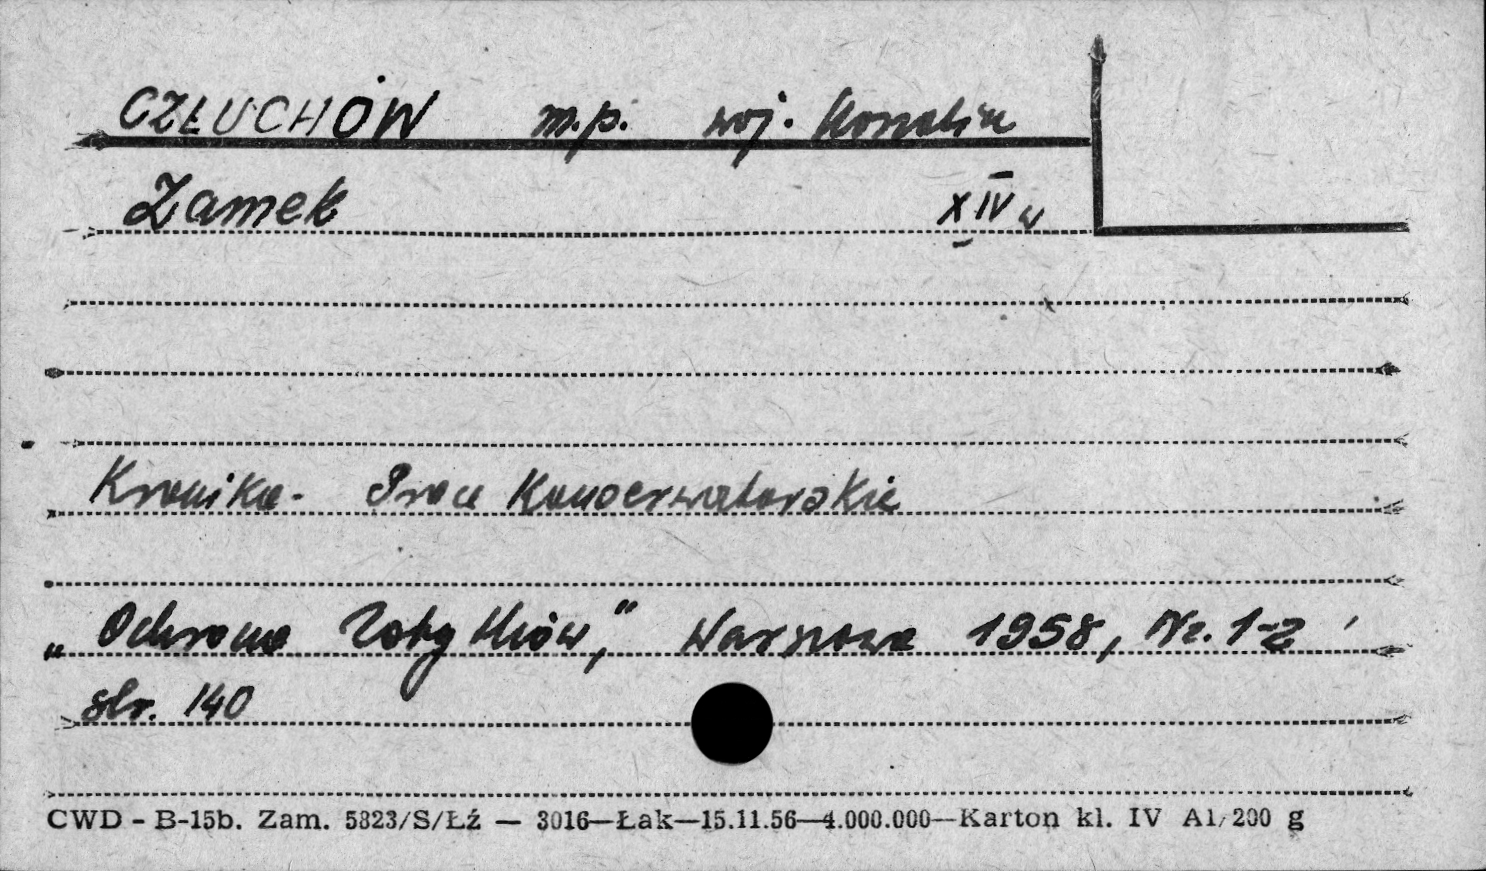 CZŁUCHÓW m.p. woj. Koszalin
Zamek XIV w
Kronika - Prace Konserwatorskie
„Ochrona Zabytków," Warszawa 1958, Nr. 1-2
str. 140
CWD - B-15b. Zam. 5823/S/Łź — 3016—Łak—15.11.56—4.000.000—Karton kl. IV A1/200 g